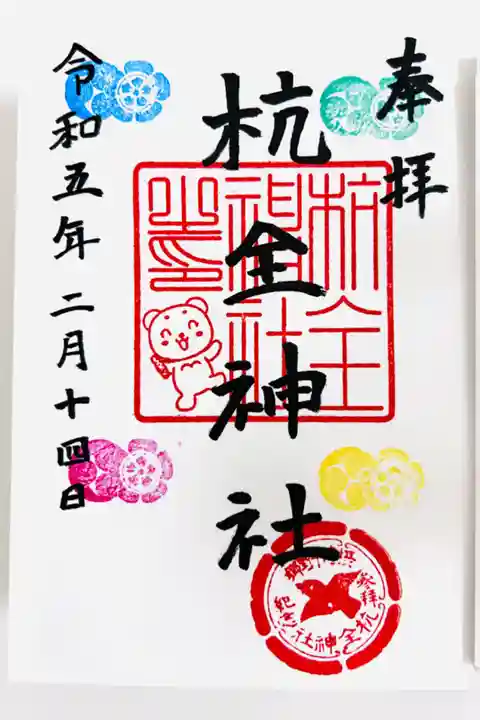 奉拝
杭全神社
令和五年二月十四日
杭全
神社
之印
参拝
紀念
杭全神社